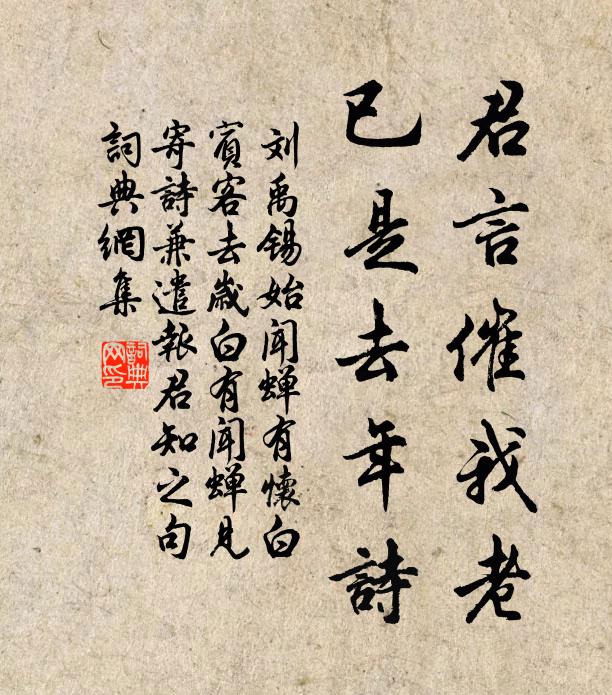 君言催我老
已是去年詩
刘禹锡始闻蝉有懷白
賓客去歲白有闻蝉見
寄詩兼遣報君知之句
詞典網集
詞典
网印